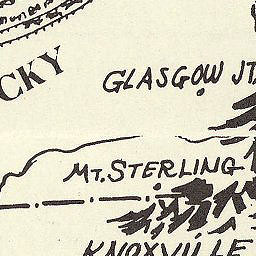 CKY
GLASGOW JT.
MT. STERLING
KNOXVILLE